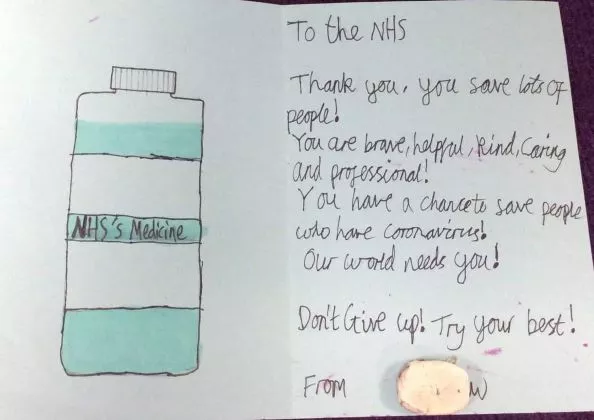 NHS's Medicine
To the NHS
Thank you, you save lots of
people!
You are brave, helpful, kind, Caring
and professional!
You have a chance to save people
who have coronavirus!
Our world needs you!
Don't Give up! Try your best!
From